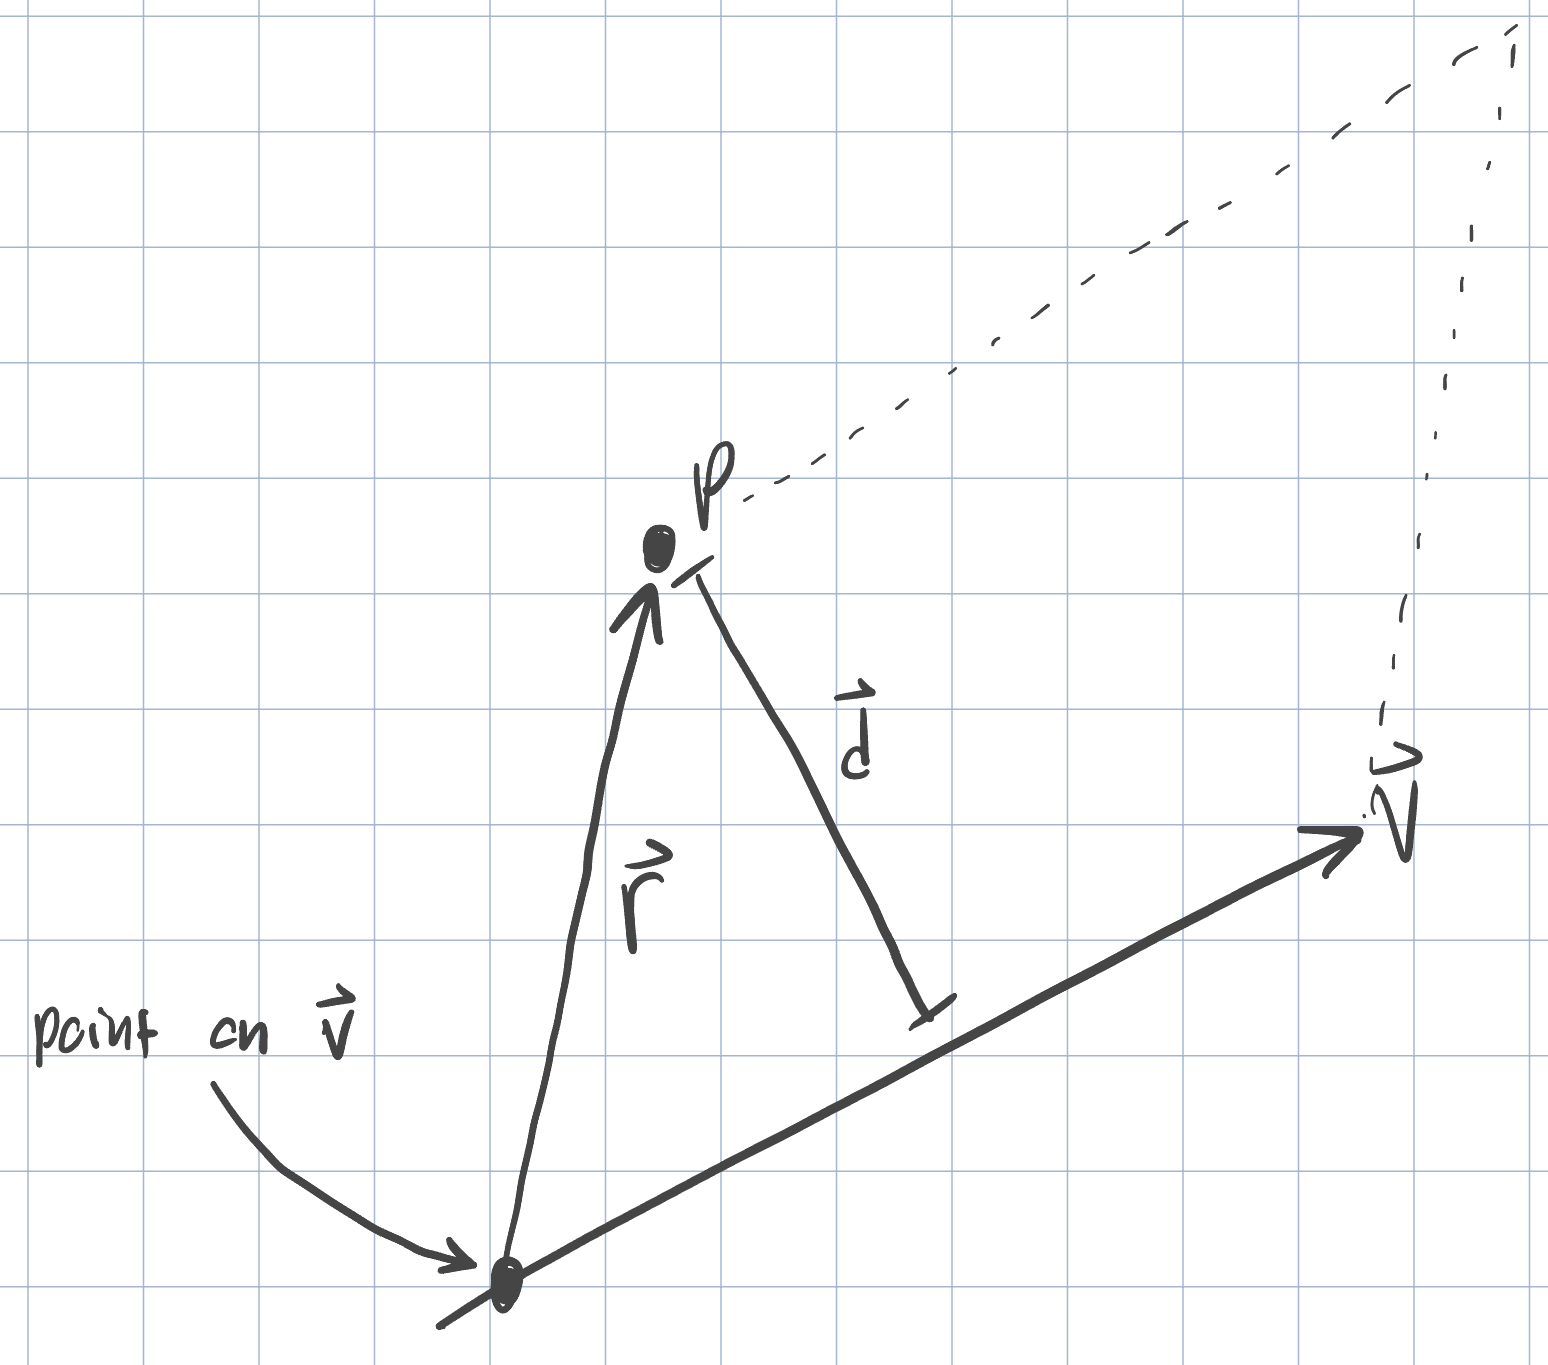 P
d⃗
V⃗
r⃗
point on v⃗